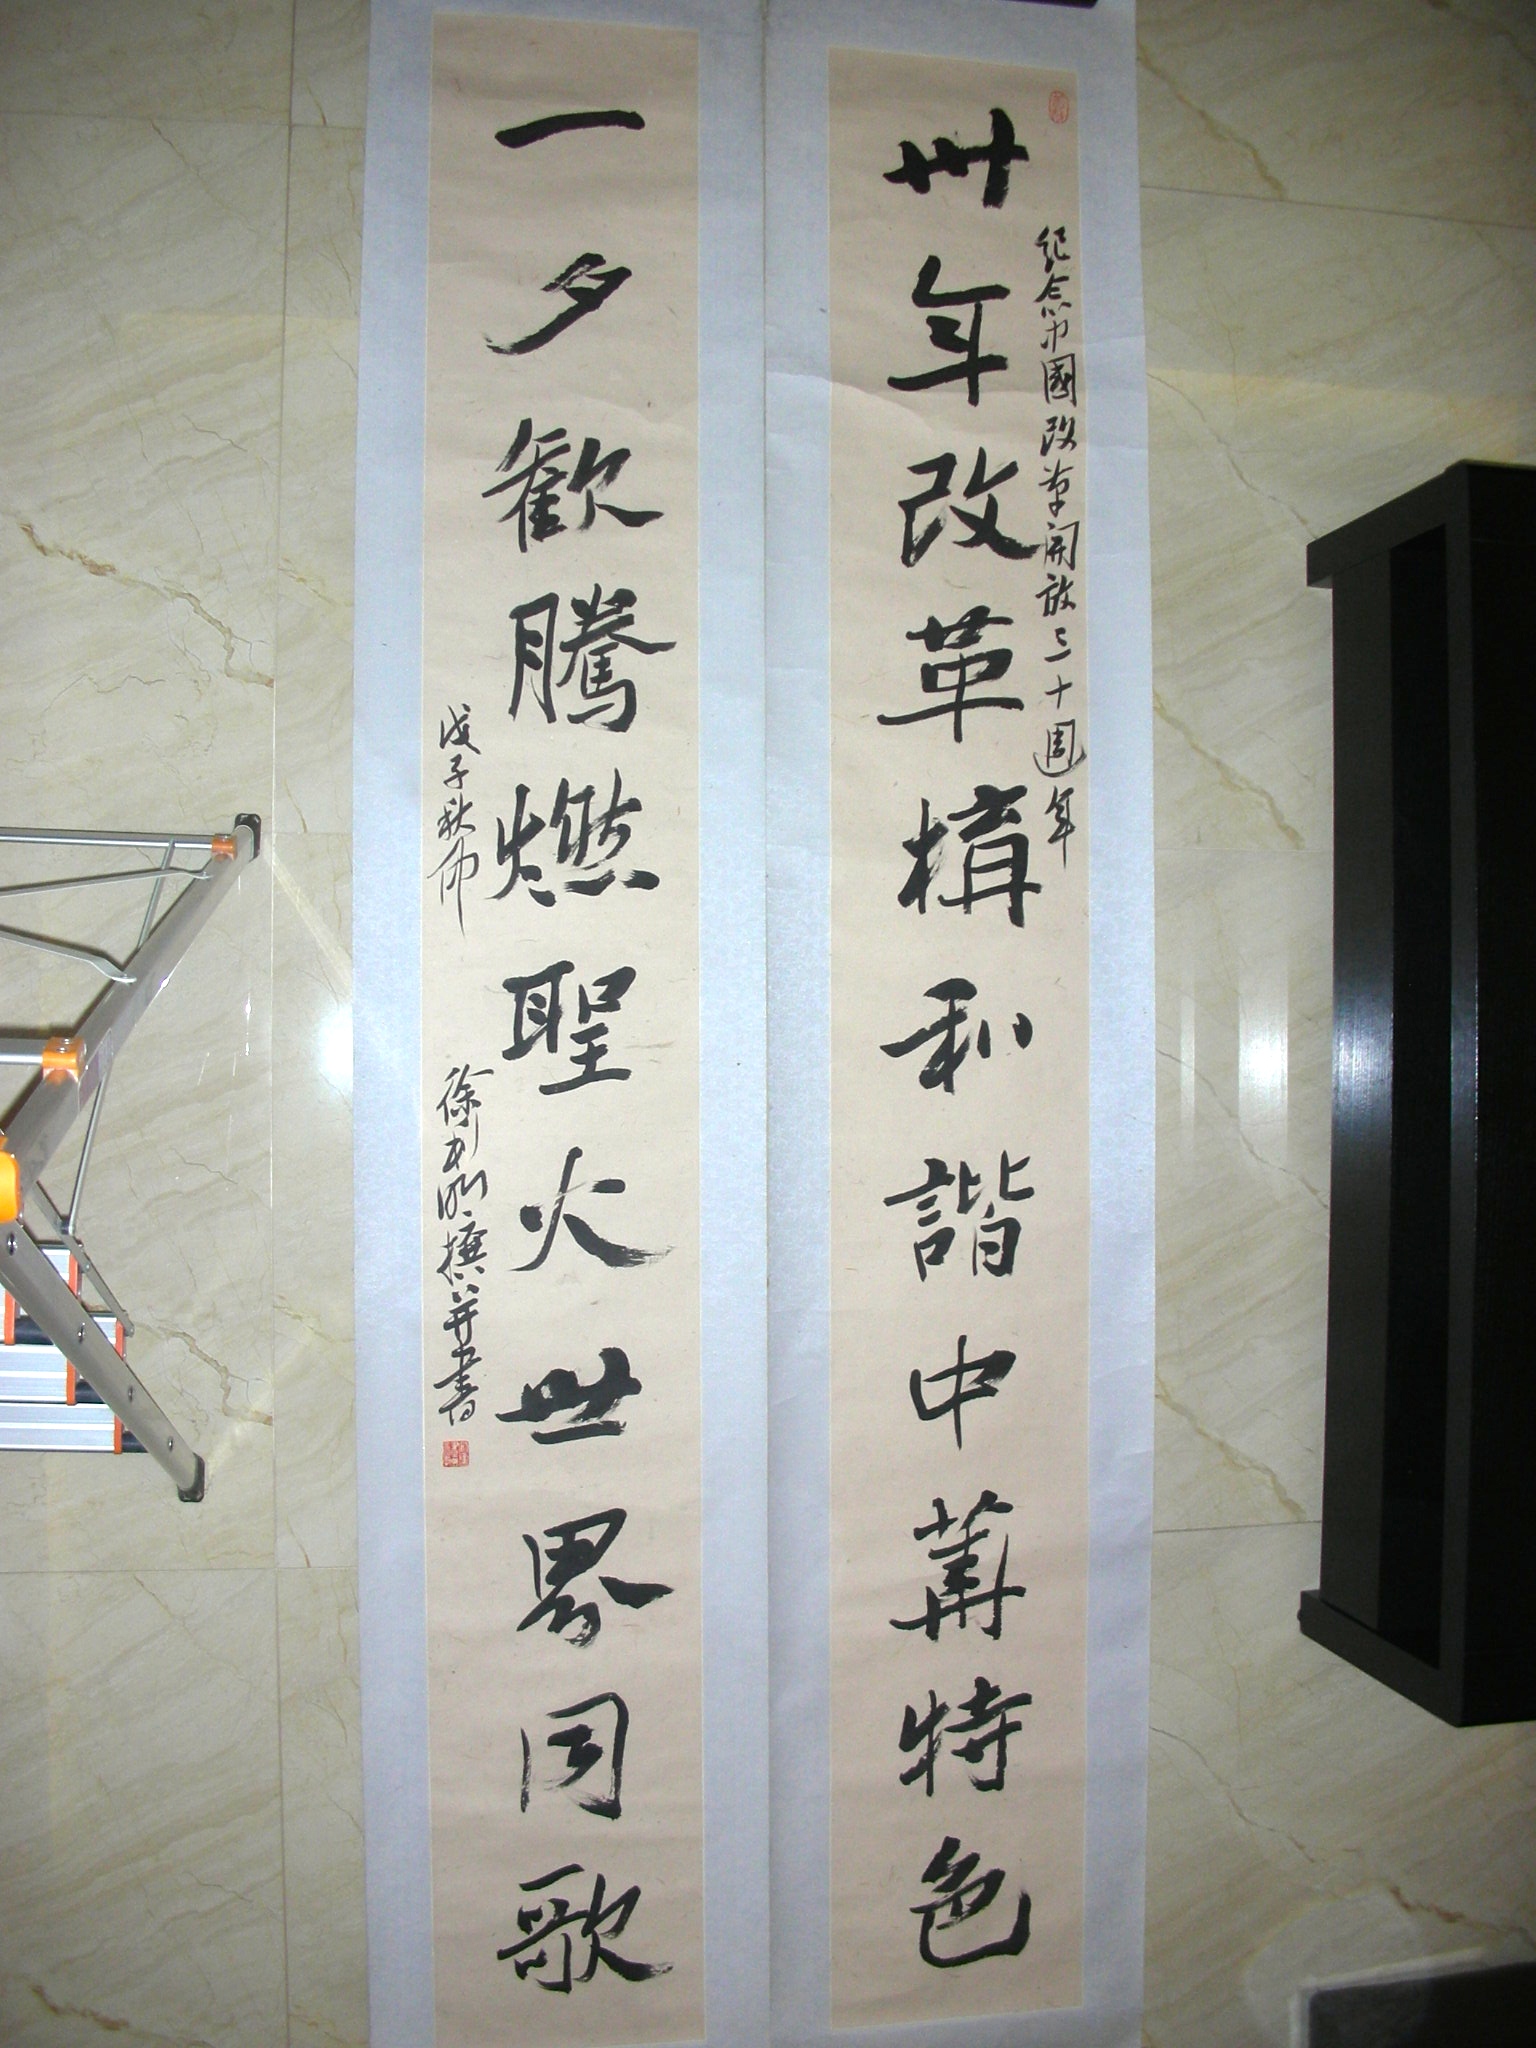 紀念中國改革開放三十週年
卅年改革構和諧中華特色
一夕歡騰燃聖火世界同歌
戊子秋
徐 撰并書